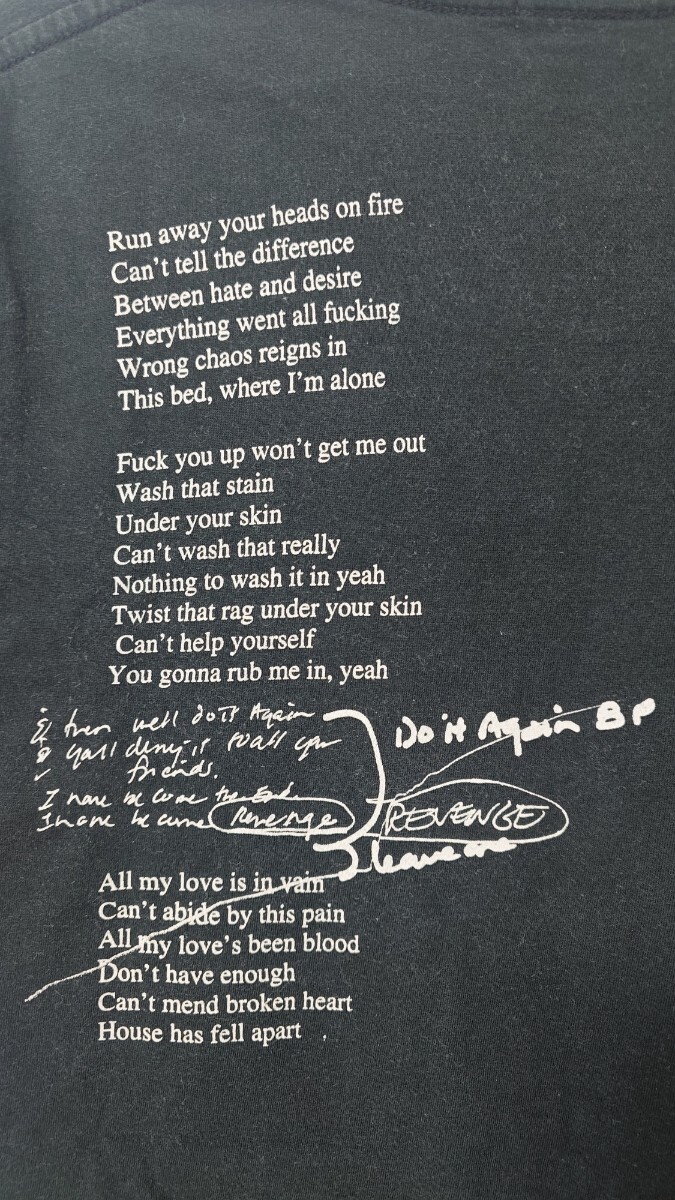 Run away your heads on fire
Can't tell the difference
Between hate and desire
Everything went all fucking
Wrong chaos reigns in
This bed, where I'm alone
Fuck you up won't get me out
Wash that stain
Under your skin
Can't wash that really
Nothing to wash it in yeah
Twist that rag under your skin
Can't help yourself
You gonna rub me in, yeah
then well do it Again
yall deny it to all your
friends.
I have become the End
I have became Revenge
Do it Again BP
REVENGE
leave me
All my love is in vain
Can't abide by this pain
All my love's been blood
Don't have enough
Can't mend broken heart
House has fell apart